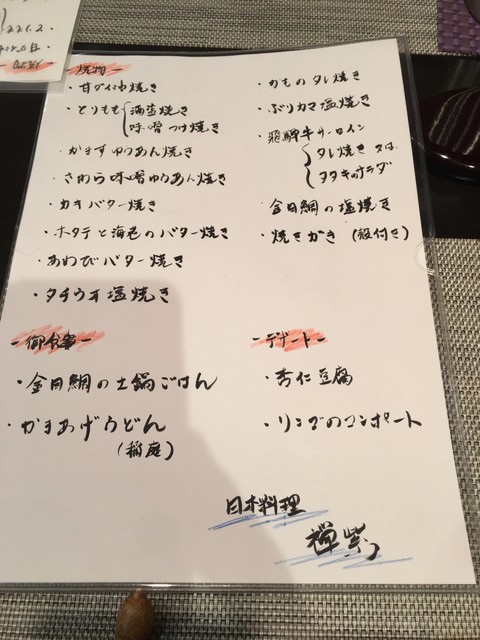 -焼物-
・甘ダイ油焼き
・とりもも 酒盗焼き
味噌つけ焼き
・かますゆうあん焼き
・さわら味噌ゆうあん焼き
・カキバター焼き
・ホタテと海老のバター焼き
・あわびバター焼き
・タチウオ塩焼き
・かものタレ焼き
・ぶりカマ塩焼き
・飛騨牛サーロイン
タレ焼き 又は
タタキのサラダ
・金目鯛の塩焼き
・焼きがき (殻付き)
-御食事-
・金目鯛の土鍋ごはん
・かまあげうどん
(稲庭)
-デザート-
・杏仁豆腐
・リンゴのコンポート
日本料理
禅紫